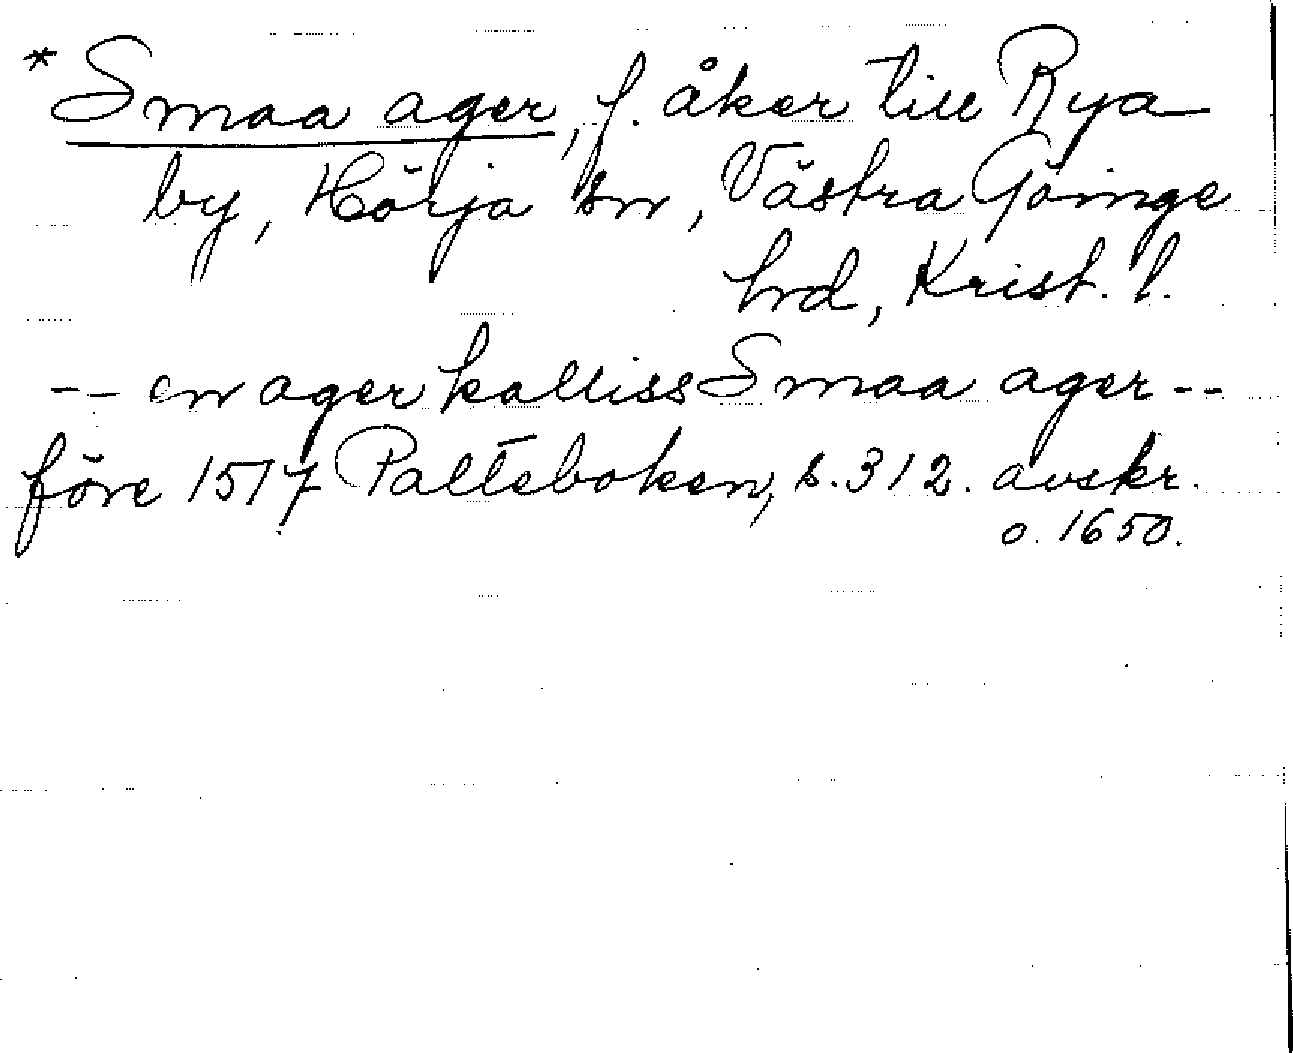 * Smaa ager, f. åker till Rya
by, Hörja sn, Västra Göinge
hrd, Krist. l.
-- en ager kalliss Smaa ager --
före 1517 Palteboken, s. 312. avskr.
o. 1650.